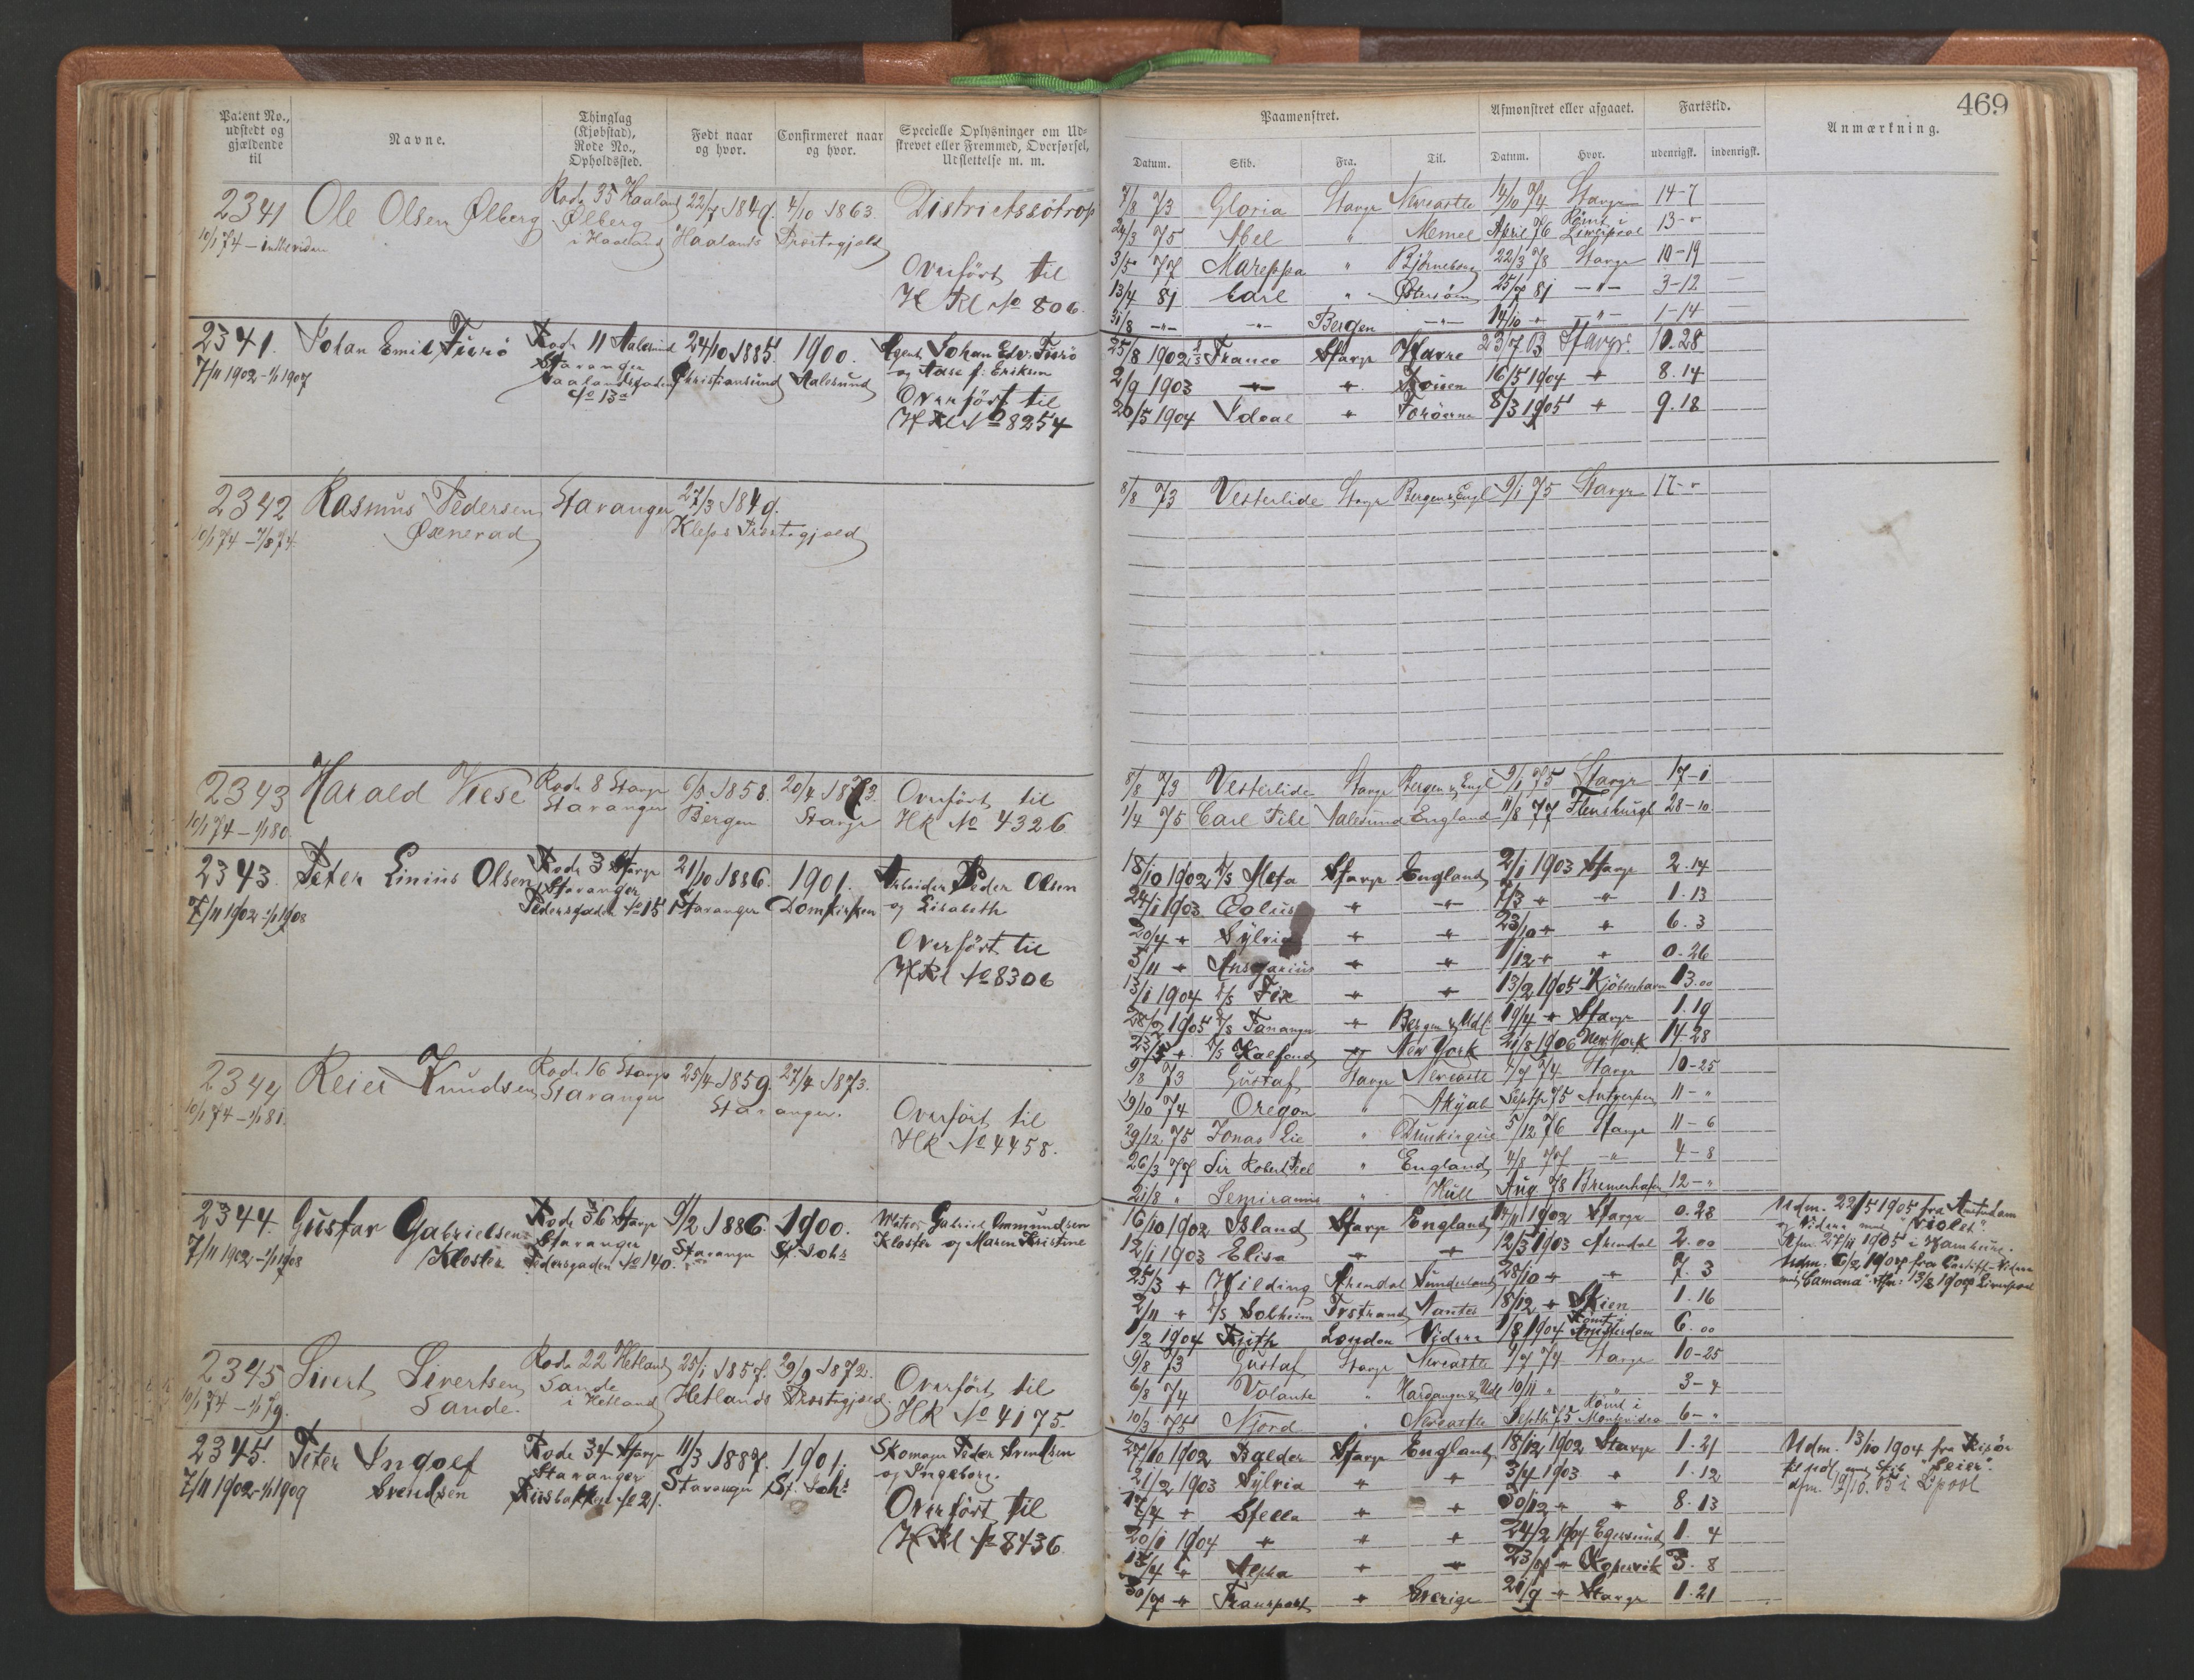 469
Patent No., udstedt og gjældende til
Navne.
Thinglag (Kjøbstad), Rode No., Opholdssted.
Født naar og hvor.
Confirmeret naar og hvor.
Specielle Oplysninger om Udskrevet eller Fremmed, Overførsel, Udslettelse m. m.
Paamønstret.
Datum.
Skib.
Fra.
Til.
Afmønstret eller afgaaet.
Datum.
Hvor.
Fartstid.
udenrigsk.
indenrigsk.
Anmærkning.
2341 Ole Olsen Ølberg Rode 35 Haaland 22/7 1849. 4/10 1863. Districtssötrop
10/1 74 - Ølberg i Haaland Haalands Præstegjeld
Overført til
H Rl No 806.
7/8 73 Gloria Stavgr Newcastle 14/10 74 Stavgr 14-7
24/3 75 Abel " Memel April 76 Rømt i Liverpool 13-"
3/5 77 Mareppa " Bjørneborg 22/3 78 Stavgr 10-19
13/4 81 Carl " Østersøen 25/7 81 -"- 3-12
31/8 -"- -"- Bergen -"- 14/10 " -"- 1-14
2341. Johan Emil Fuirö Rode 11 Aalesund 24/10 1885. 1900. Agent Johan Edv. Fuirö
7/11 1902 - 1/1 1907 Stavanger Christiansund Aalesund og Aase f. Eriksen
No 13a
Overført til
H Rl No 8254
25/8 1902 Franco Stavgr Havre 23/7 03 Stavgr. 10.28
2/9 1903 Rouen 16/5 1904 8.14
20/5 1904 Ideal Færöerne 8/3 1905 9.18
2342 Rasmus Pedersen Stavanger 27/3 1849.
10/1 74 - 1/8 74. Øxnerad Kleps Præstegjeld
8/8 73 Vesterlide Stavgr Bergen & Engl 9/1 75 Stavgr 17-"
2343 Harald Wiese Rode 8 Stavgr 6/5 1858. 20/4 1873. Overført til
10/1 74 - 1/1 80. Stavanger Bergen Stavgr HR No 4326
8/8 73 Vesterlide Stavgr Bergen & Engl 9/1 75 Stavgr 17-1
1/4 75 Carl Fihl Aalesund England 11/8 77 Flensburgh 28-10.
2343. Peter Linius Olsen Rode 3 Stavgr 21/10 1886. 1901. Arbeider Peder Olsen
7/11 1902 - 1/1 1908 Stavanger Stavanger Domkirken og Lisabeth
Pedersgaden No 15
Overført til
H Rl No 8306
18/10 1902 D/S Meta Stavgr England 2/1 1903 Stavgr 2.14
24/1 1903 Eolus 7/3 1.13
20/4 Sylvia 23/10 6.3
3/11 Ansgarius 1/12 0.26
13/1 1904 D/S Fix 13/2 1905 Kjöbenhavn 13.00
28/2 1905 D/S Tananger Bergen & Udl. 19/4 Stavgr 1.19
23/5 D/S Kalfond New York 21/8 1906 New York 14-28
2344 Reier Knudsen Rode 16 Stavgr 25/4 1859 27/4 1873.
10/1 74 - 1/1 81. Stavanger Stavanger.
Overført til
HR No 4458.
9/8 73 Gustaf Stavgr Newcastle 7/7 74 Stavgr 10-25
9/10 74 Oregon " Akyab Septbr 75 Antverpen 11-"
29/12 75 Jonas Lie " Dunkirque 5/12 76 Stavgr 11-6
26/3 77 Sir Robert Peel " England 4/8 77 -"- 4-8
21/8 " Semiramis " Hull Aug 78 Bremerhafen 12-"
2344. Gustav Gabrielsen Rode 36 Stavgr 9/2 1886. 1900. Matros Gabriel Ommundsen
7/11 1902 - 1/1 1908 Kloster Stavanger Stavanger St. Johs Kloster og Maren Kristine
Pedersgaden No 140.
16/10 1902 Island Stavgr England 14/11 1902 Stavgr 0.28
12/1 1903 Elisa 12/3 1903 Arendal 2.00
25/3 Hilding Arendal Sunderland 28/10 7.3
2/11 D/S Solheim Tvestrand Nantes 18/12 Skien 1.16
1/2 1904 Ruth London Videre 1/8 1904 Rømt i Amsterdam 6.00
Udm. 22/5 1905 fra Amsterdam
og Videre med "Violet".
Afm. 27/11 1905 i Hamburg.
Udm. 6/2 1907 fra Cardiff - Videre
med "Camana" Afm: 13/8 1907 Liverpool
2345 Sivert Sivertsen Rode 22 Hetland 25/1 1857. 29/9 1872. Overført til
10/1 74 - 1/1 79. Sande. Sande i Hetland Hetlands Præstegjeld. HR No 4175
9/8 73 Gustaf Stavgr Newcastle 7/7 74 Stavgr 10-25
6/8 74 Volante " Hardanger & Udl 10/11 " " 3-4
10/3 75 Njord " Newcastle Septbr 75 Rømt i Montevideo 6-"
2345. Peter Ingolf Rode 34 Stavgr 11/3 1887. 1901. Skomager Peder Svendsen
7/11 1902 - 1/1 1909 Svendsen Stavanger Stavanger St. Johs og Ingeborg.
No 21.
Overført til
H Rl No 8436.
27/10 1902 Balder Stavgr England 18/12 1902 Stavgr 1.21
21/2 1903 Sylvia 3/4 1903 1.12
17/4 Stella 30/12 8.13
20/1 1904 24/2 1904 Egersund 1.4
15/4 Alpha 23/7 Kopervik 3.8
30/7 Transport Sverige 20/9 Stavgr 1.21
Udm. 13/10 1904 fra Risör
til Udl. med Skib "Seier".
Afm. 19/10. 05 i L'pool